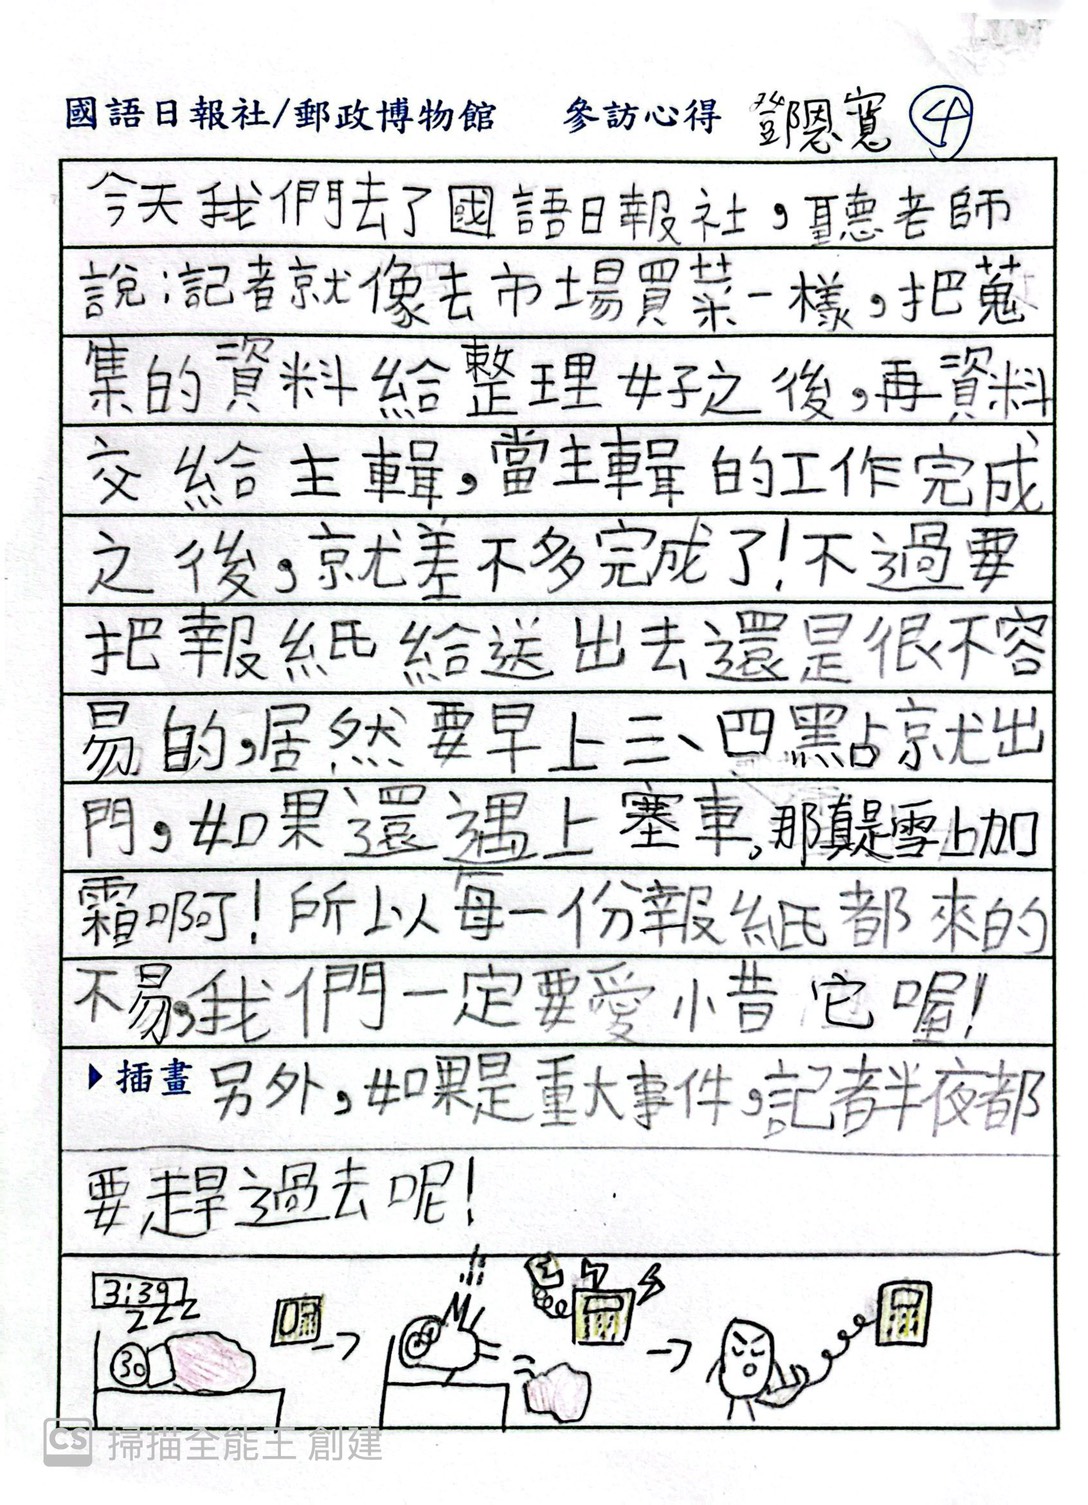 國語日報社/郵政博物館 參訪心得 鄧恩寬 4
今天我們去了國語日報社,聽老師
說:記者就像去市場買菜一樣,把蒐
集的資料給整理好之後,再資料
交給主輯,當主輯的工作完成
之後,就差不多完成了!不過要
把報紙給送出去還是很不容
易的,居然要早上三、四點就出
門,如果還遇上塞車,那真是雪上加
霜啊!所以每一份報紙都來的
不易,我們一定要愛小昔它喔!
▶插畫 另外,如果是重大事件,記者半夜都
要趕過去呢!
3:39
zzz
CS 掃描全能王 創建